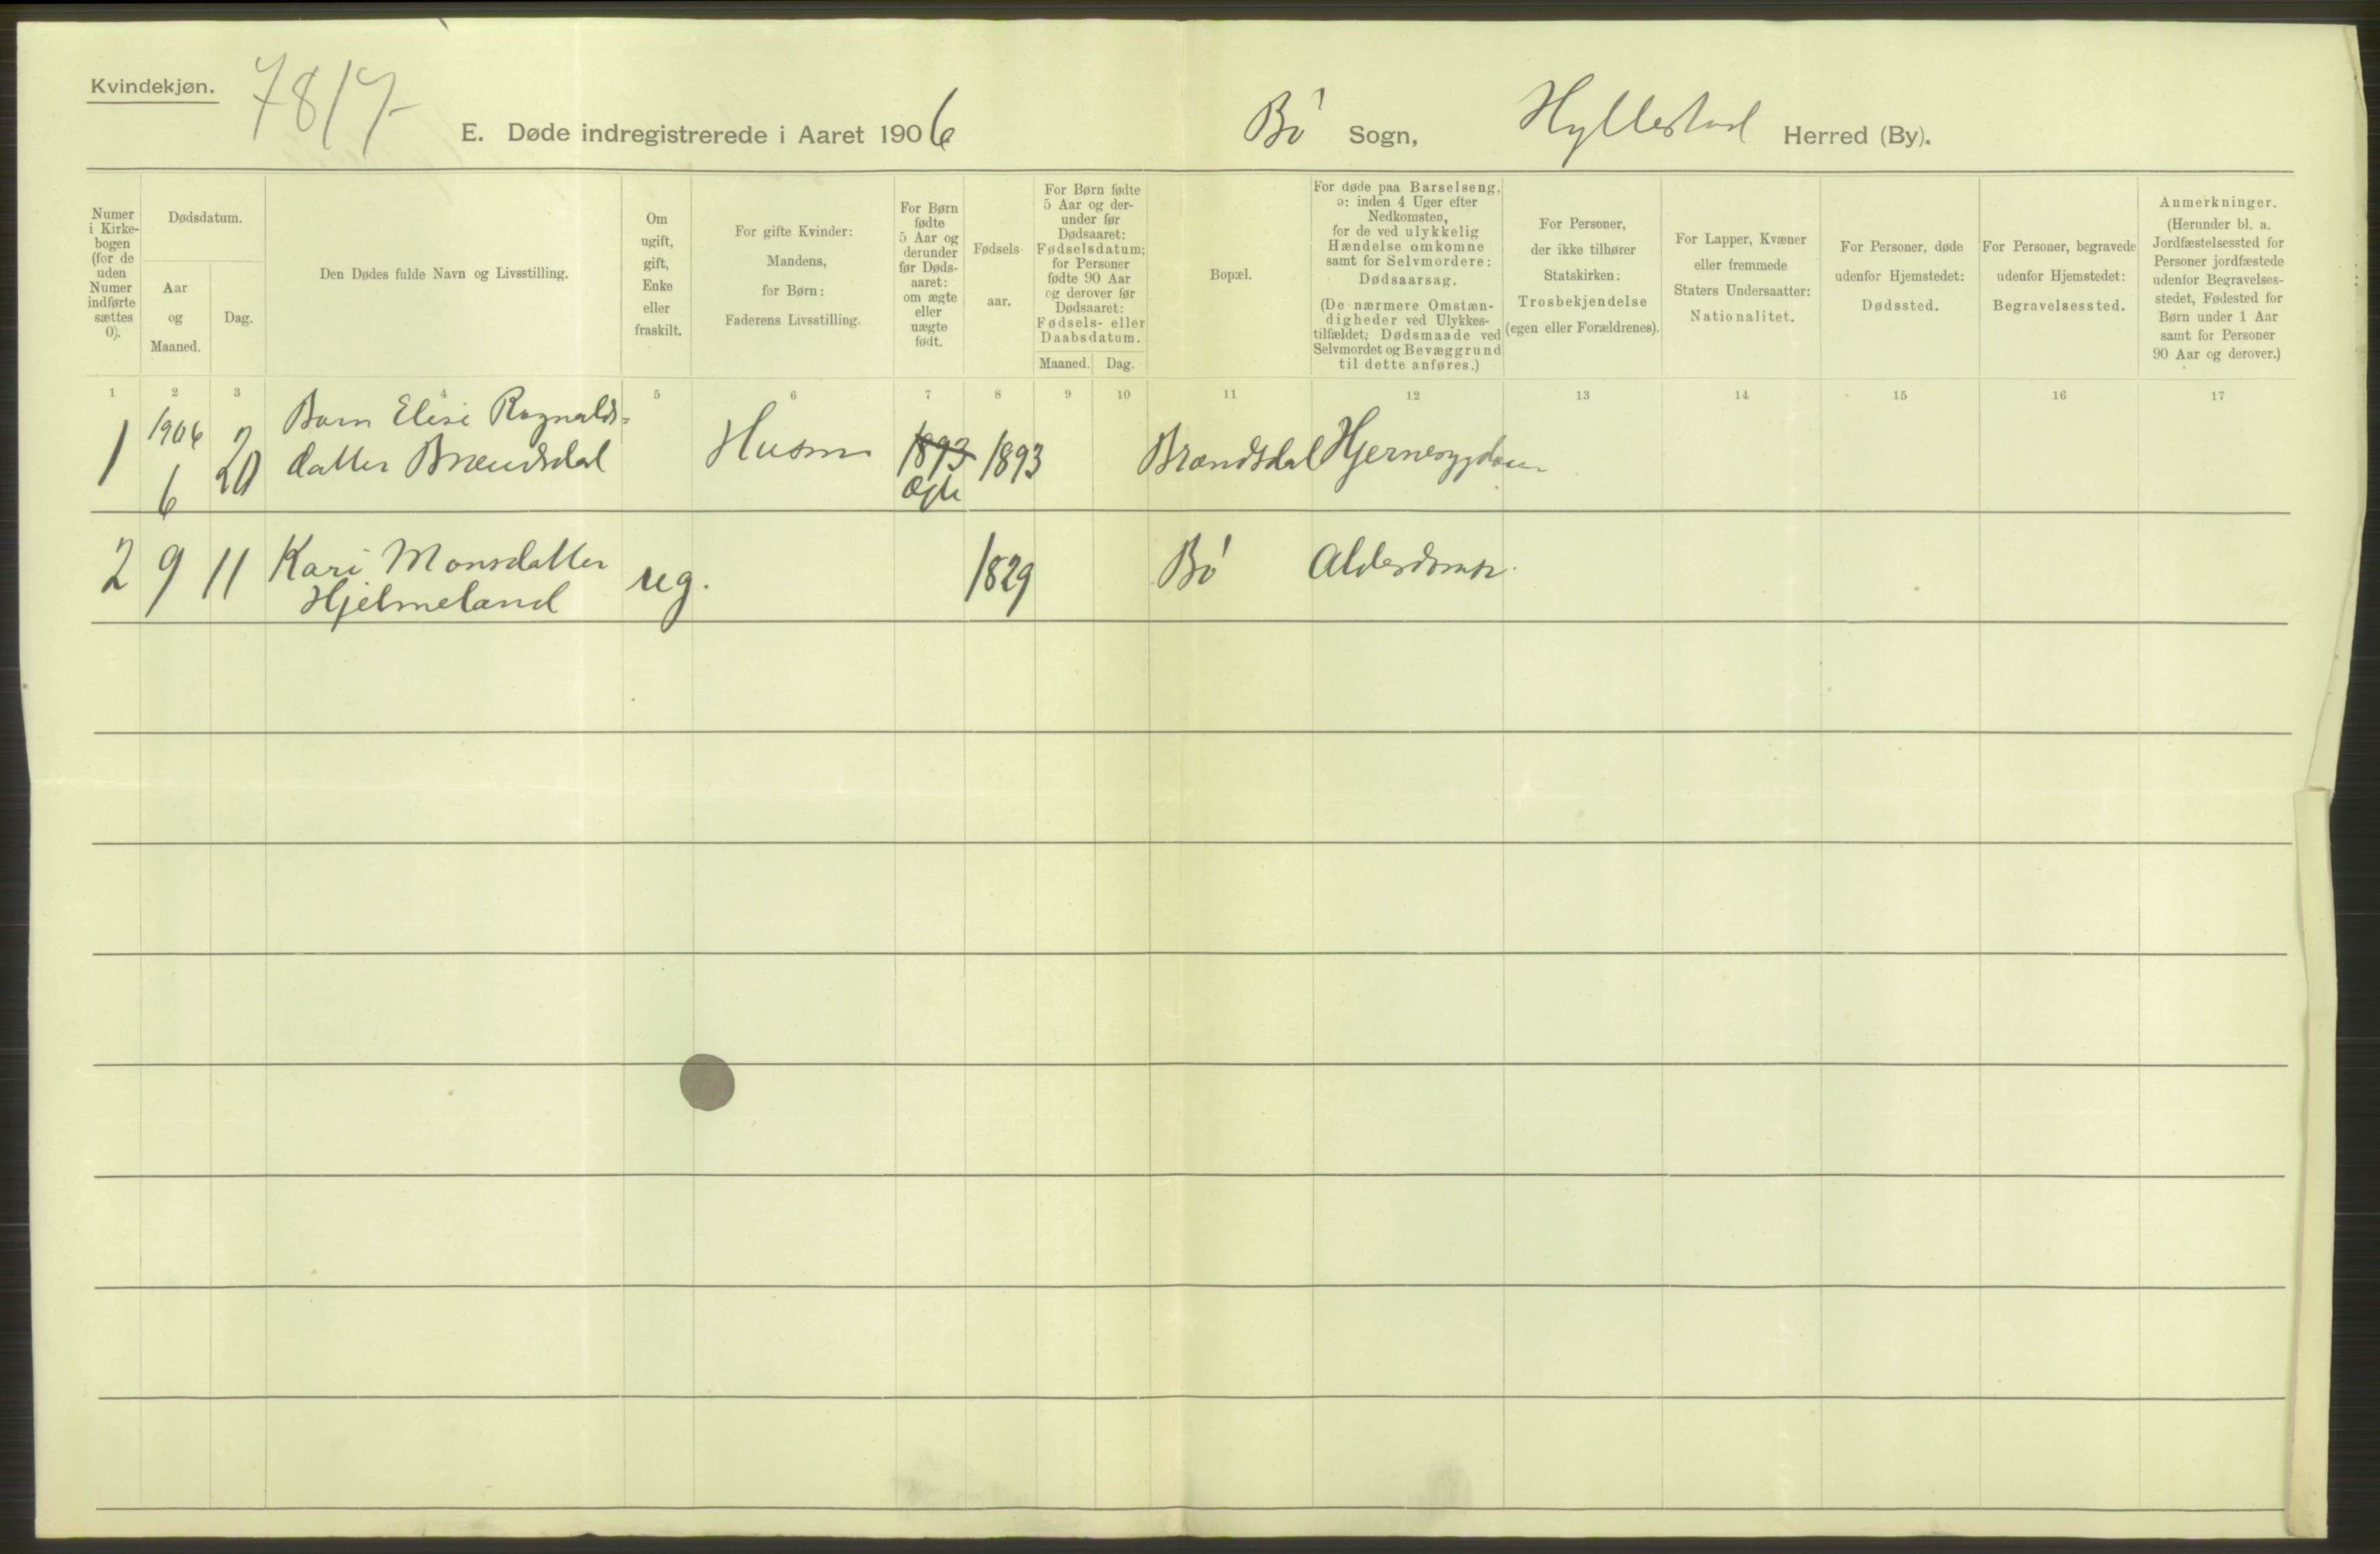 Kvindekjøn.
7817
E. Døde indregistrerede i Aaret 1906
Bö Sogn, Hyllestad Herred (By).
Numer
i Kirke-
bogen
(for de
uden
Numer
indførte
sættes
0).
Dødsdatum.
Aar
og
Maaned.
Dag.
Den Dødes fulde Navn og Livsstilling.
Om
ugift,
gift,
Enke
eller
fraskilt.
For gifte Kvinder:
Mandens,
for Børn:
Faderens Livsstilling.
For Børn
fødte
5 Aar og
derunder
før Døds-
aaret:
om ægte
eller
uægte
født.
Fødsels-
aar.
For Børn fødte
5 Aar og der-
under før
Dødsaaret:
Fødselsdatum;
for Personer
fødte 90 Aar
og derover før
Dødsaaret:
Fødsels- eller
Daabsdatum.
Maaned. Dag.
Bopæl.
For døde paa Barselseng,
ɔ: inden 4 Uger efter
Nedkomsten,
for de ved ulykkelig
Hændelse omkomne
samt for Selvmordere:
Dødsaarsag.
(De nærmere Omstæn-
digheder ved Ulykkes-
tilfældet; Dødsmaade ved
Selvmordet og Bevæggrund
til dette anføres.)
For Personer,
der ikke tilhører
Statskirken:
Trosbekjendelse
(egen eller Forældrenes).
For Lapper, Kvæner
eller fremmede
Staters Undersaatter:
Nationalitet.
For Personer, døde
udenfor Hjemstedet:
Dødssted.
For Personer, begravede
udenfor Hjemstedet:
Begravelsessted.
Anmerkninger.
(Herunder bl. a.
Jordfæstelsessted for
Personer jordfæstede
udenfor Begravelses-
stedet, Fødested for
Børn under 1 Aar
samt for Personer
90 Aar og derover.)
1 2 3 4 5 6 7 8 9 10 11 12 13 14 15 16 17
1 1906 Barn Elise Ragnalds-
6 20 datter Brændsdal Husm 1893 1893 Brændsdal Hjernesygdom
Ægte
2 9 11 Kari Monsdatter ug. 1829 Bö Alderdoms.
Hjelmeland